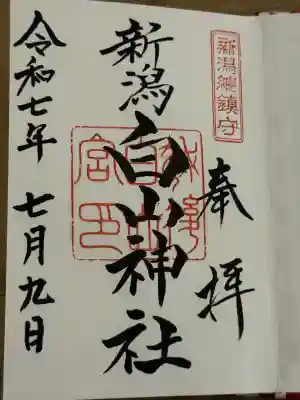 新潟總鎮守
奉拝
新潟白山神社
令和七年七月九日